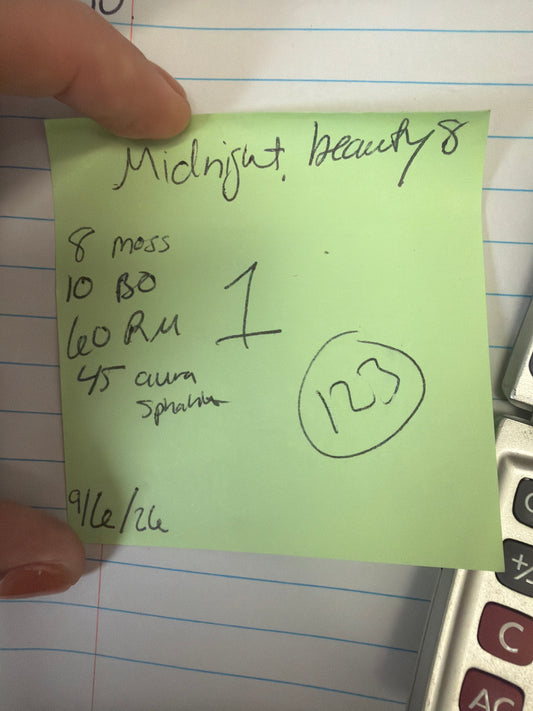 Midnight. beauty 8
8 moss
10 BO
60 RM
45 aura
1
123
9/6/26
+/
C
AC